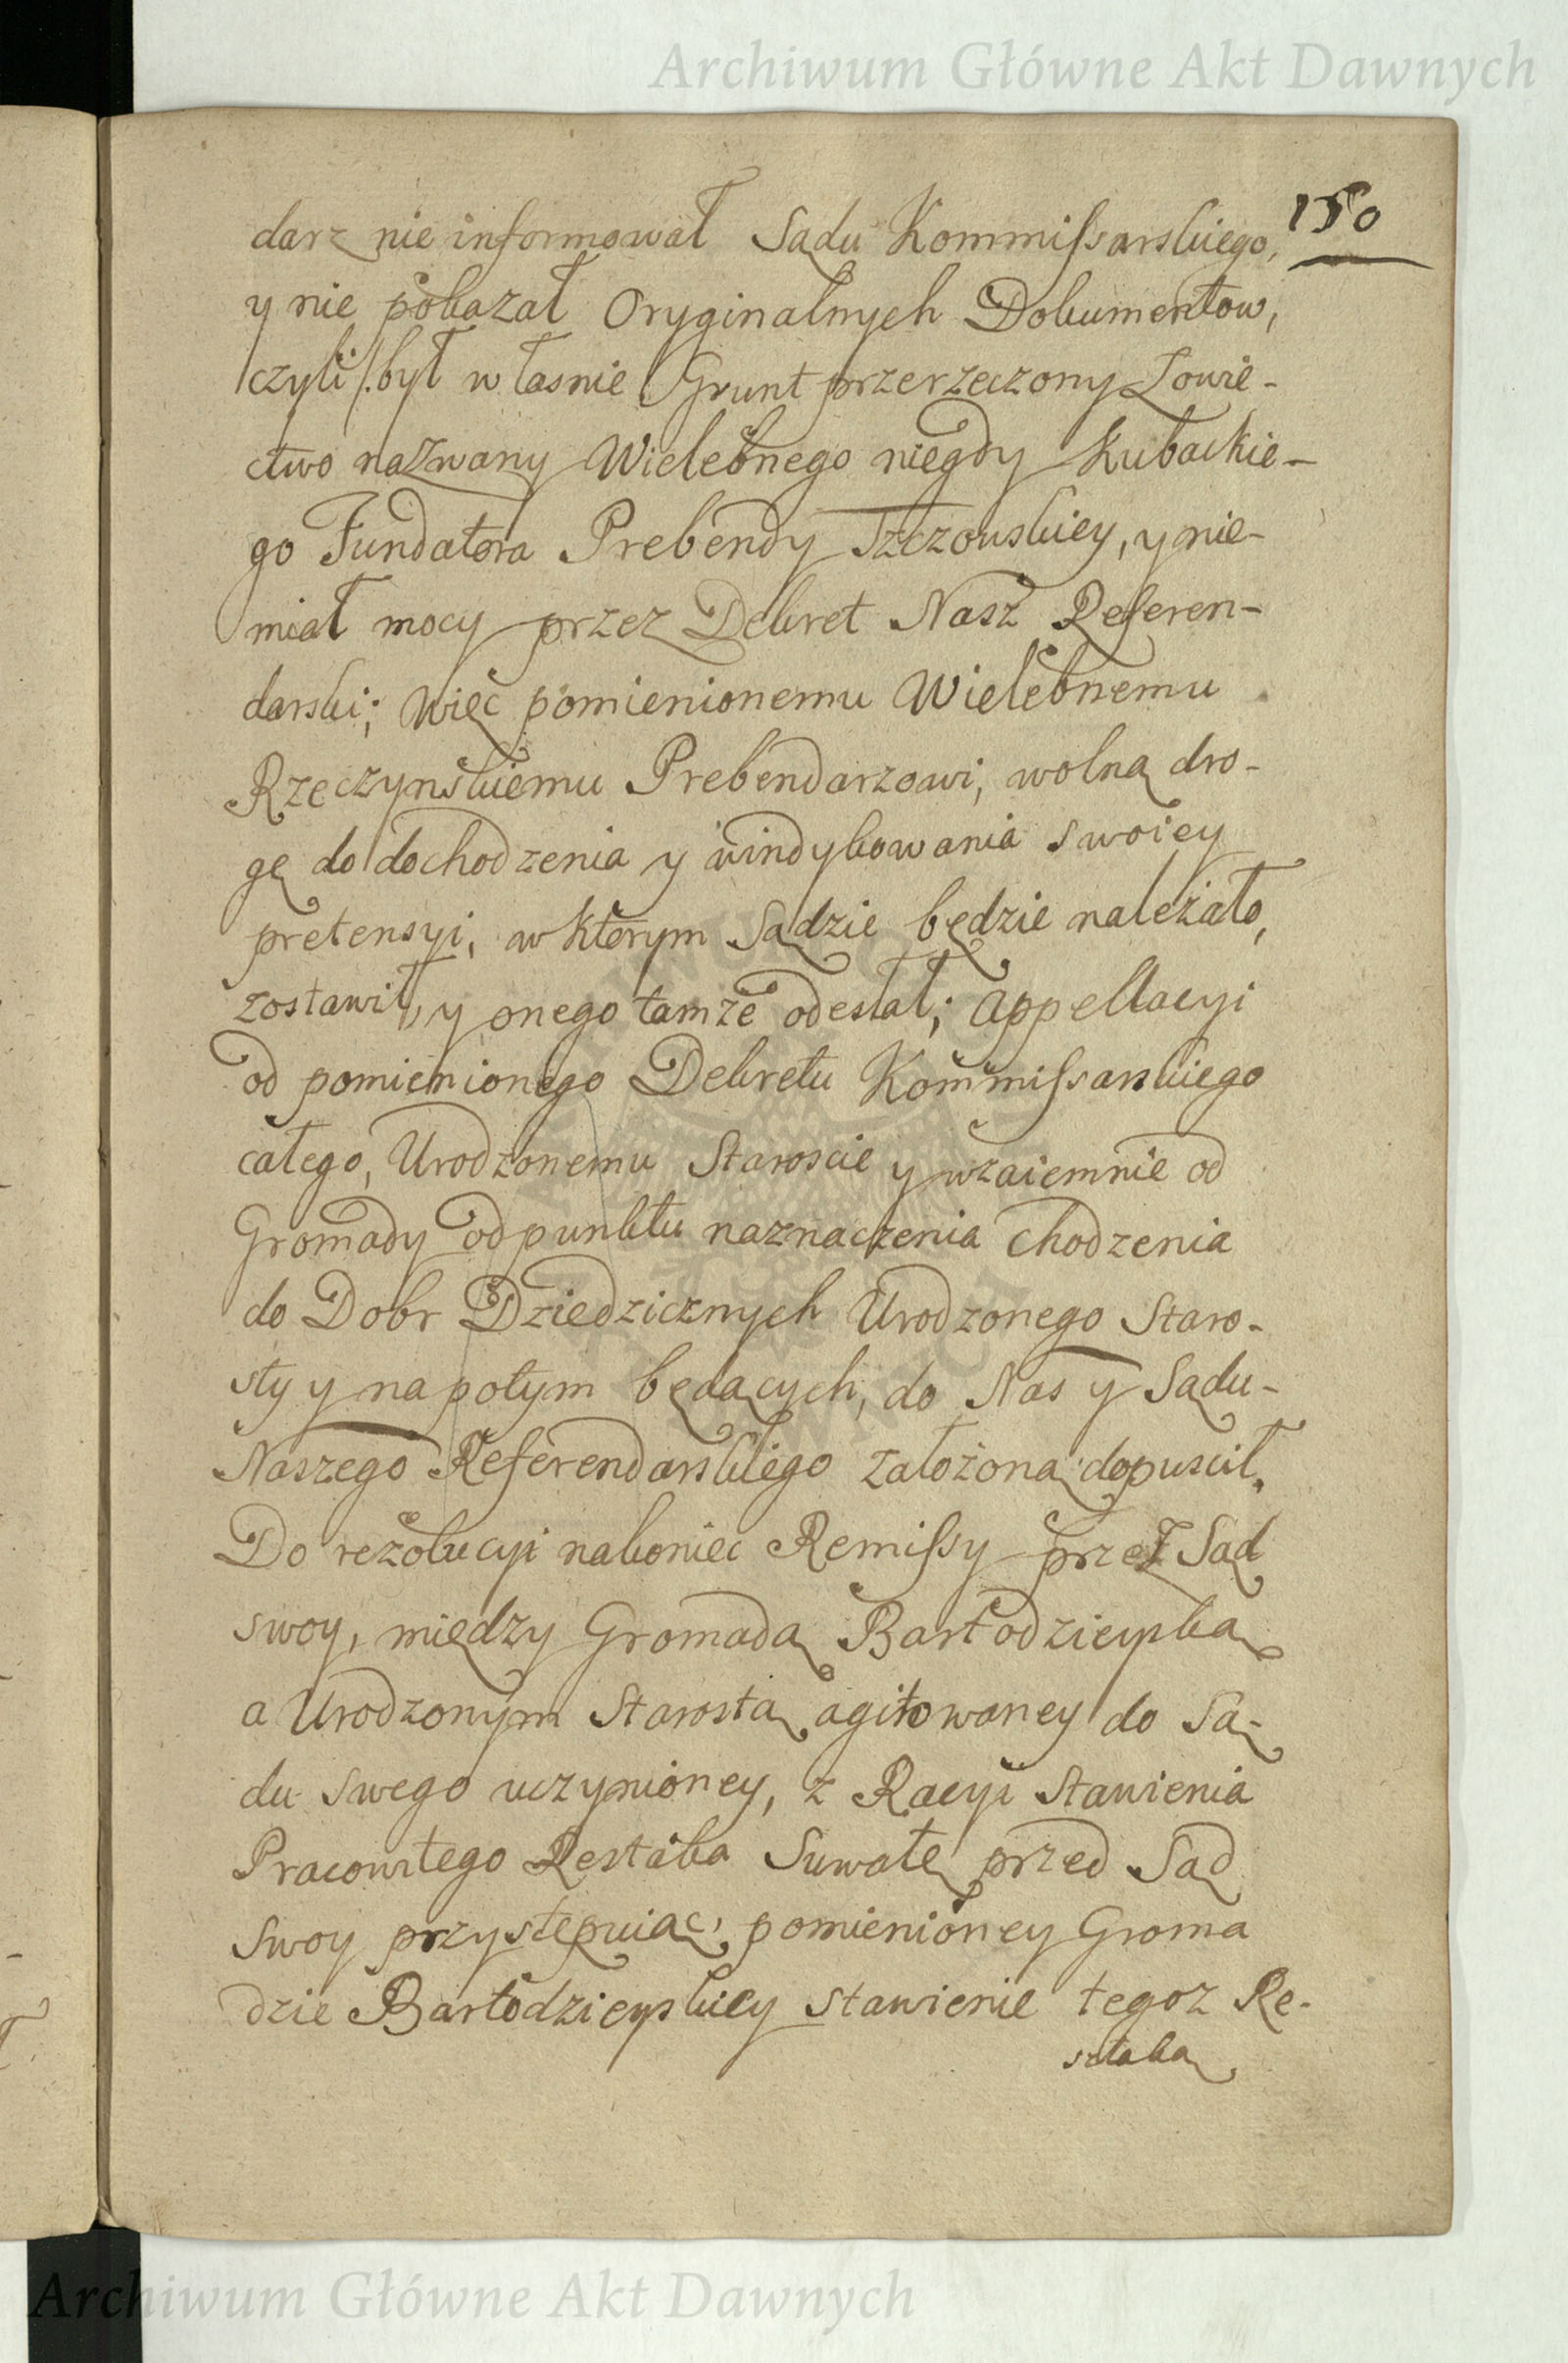 Archiwum Główne Akt Dawnych
150
darz nie informował Sądu Kommissarskiego,
y nie pokazał Oryginalnych Dokumentow,
czyli /:był własnie Grunt przerzeczony Łowie-
ctwo nazwany Wielebnego niegdy Kubackie-
go Fundatora Prebendy Tzczowskiey, y nie-
miał mocy przez Dekret Nasz Referen-
darski; Więc pomienionemu Wielebnemu
Rzeczynskiemu Prebendarzowi, wolną dro-
gę do dochodzenia y windykowania swoiey
pretensyi, w ktorym Sądzie będzie należało,
zostawił, y onego tamże odesłał; Appellacyi
od pomienionego Dekretu Kommissarskiego
całego, Urodzonemu Staroscie y wzaiemnie od
Gromady od punktu naznaczenia chodzenia
do Dobr Dziedzicznych Urodzonego Staro-
sty y na potym będących, do Nas y Sądu-
Naszego Referendarskiego założoną dopuscił,
Do rezolucyi nakoniec Remissy przez Sąd
swoy, między Gromadą Bartodzieyską
a Urodzonym Starostą agitowaney do Są-
du swego uczynioney, z Racyi Stawienia
Pracowitego Restaka Suwałę przed Sąd
swoy przystępuiąc, pomienioney Groma
dzie Bartodzieyskiey stawienie tegoz Re-
sztaka
Archiwum Główne Akt Dawnych